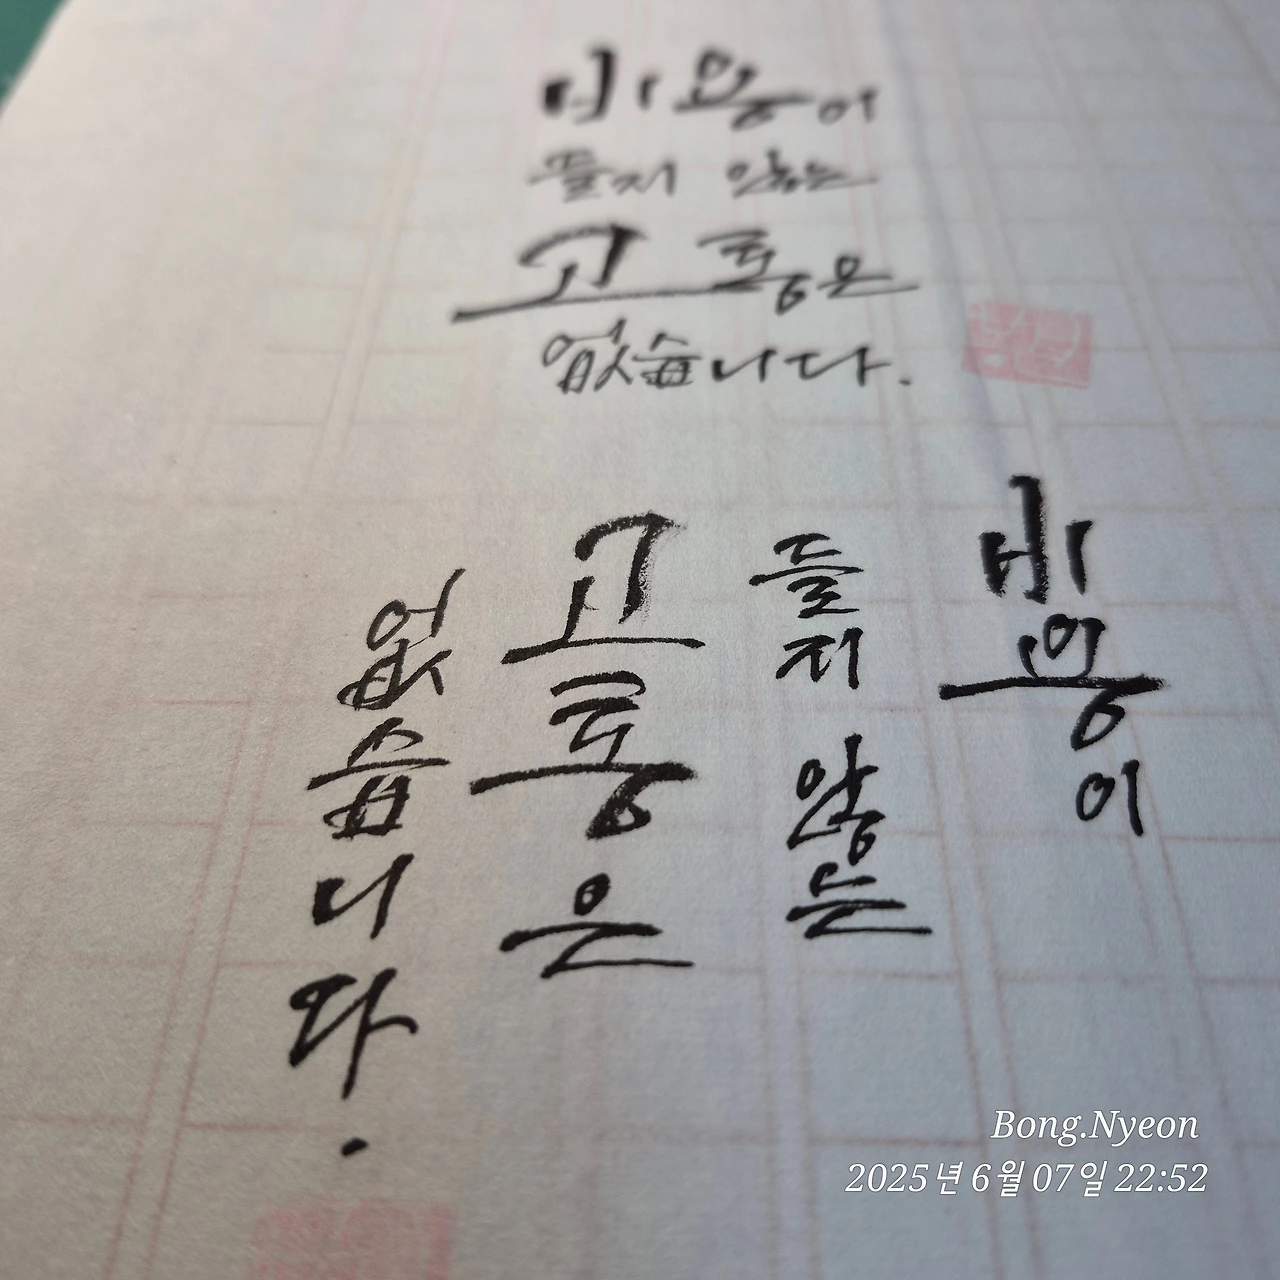 비용이
들지 않는
고통은
없습니다.
비용이
들지 않는
고통은
없습니다.
Bong.Nyeon
2025년 6월 07일 22:52